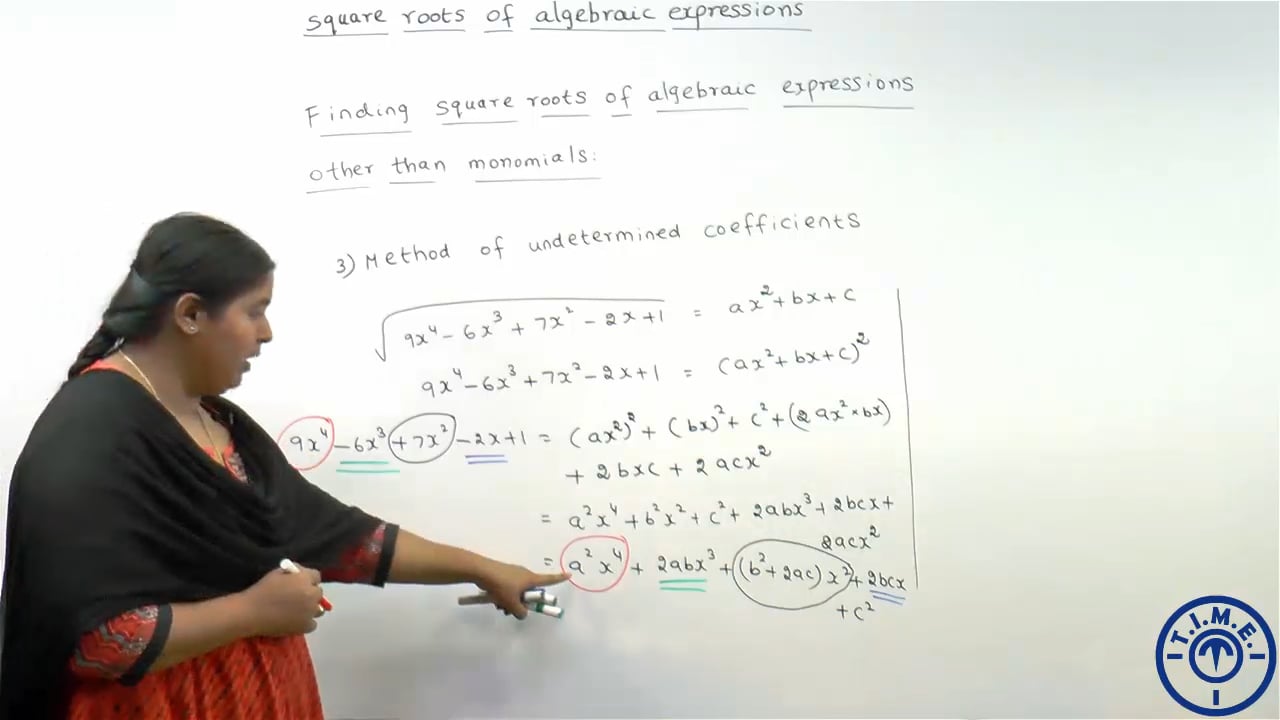 square roots of algebraic expressions
Finding square roots of algebraic expressions
other than monomials:
3) Method of undetermined coefficients
√(9x⁴ - 6x³ + 7x² - 2x + 1) = ax² + bx + c
9x⁴ - 6x³ + 7x² - 2x + 1 = (ax² + bx + c)²
9x⁴ - 6x³ + 7x² - 2x + 1 = (ax²)² + (bx)² + c² + (2ax² × bx)
+ 2bxc + 2acx²
= a²x⁴ + b²x² + c² + 2abx³ + 2bcx +
2acx²
= a²x⁴ + 2abx³ + (b² + 2ac)x² + 2bcx
+ c²
T.I.M.E.